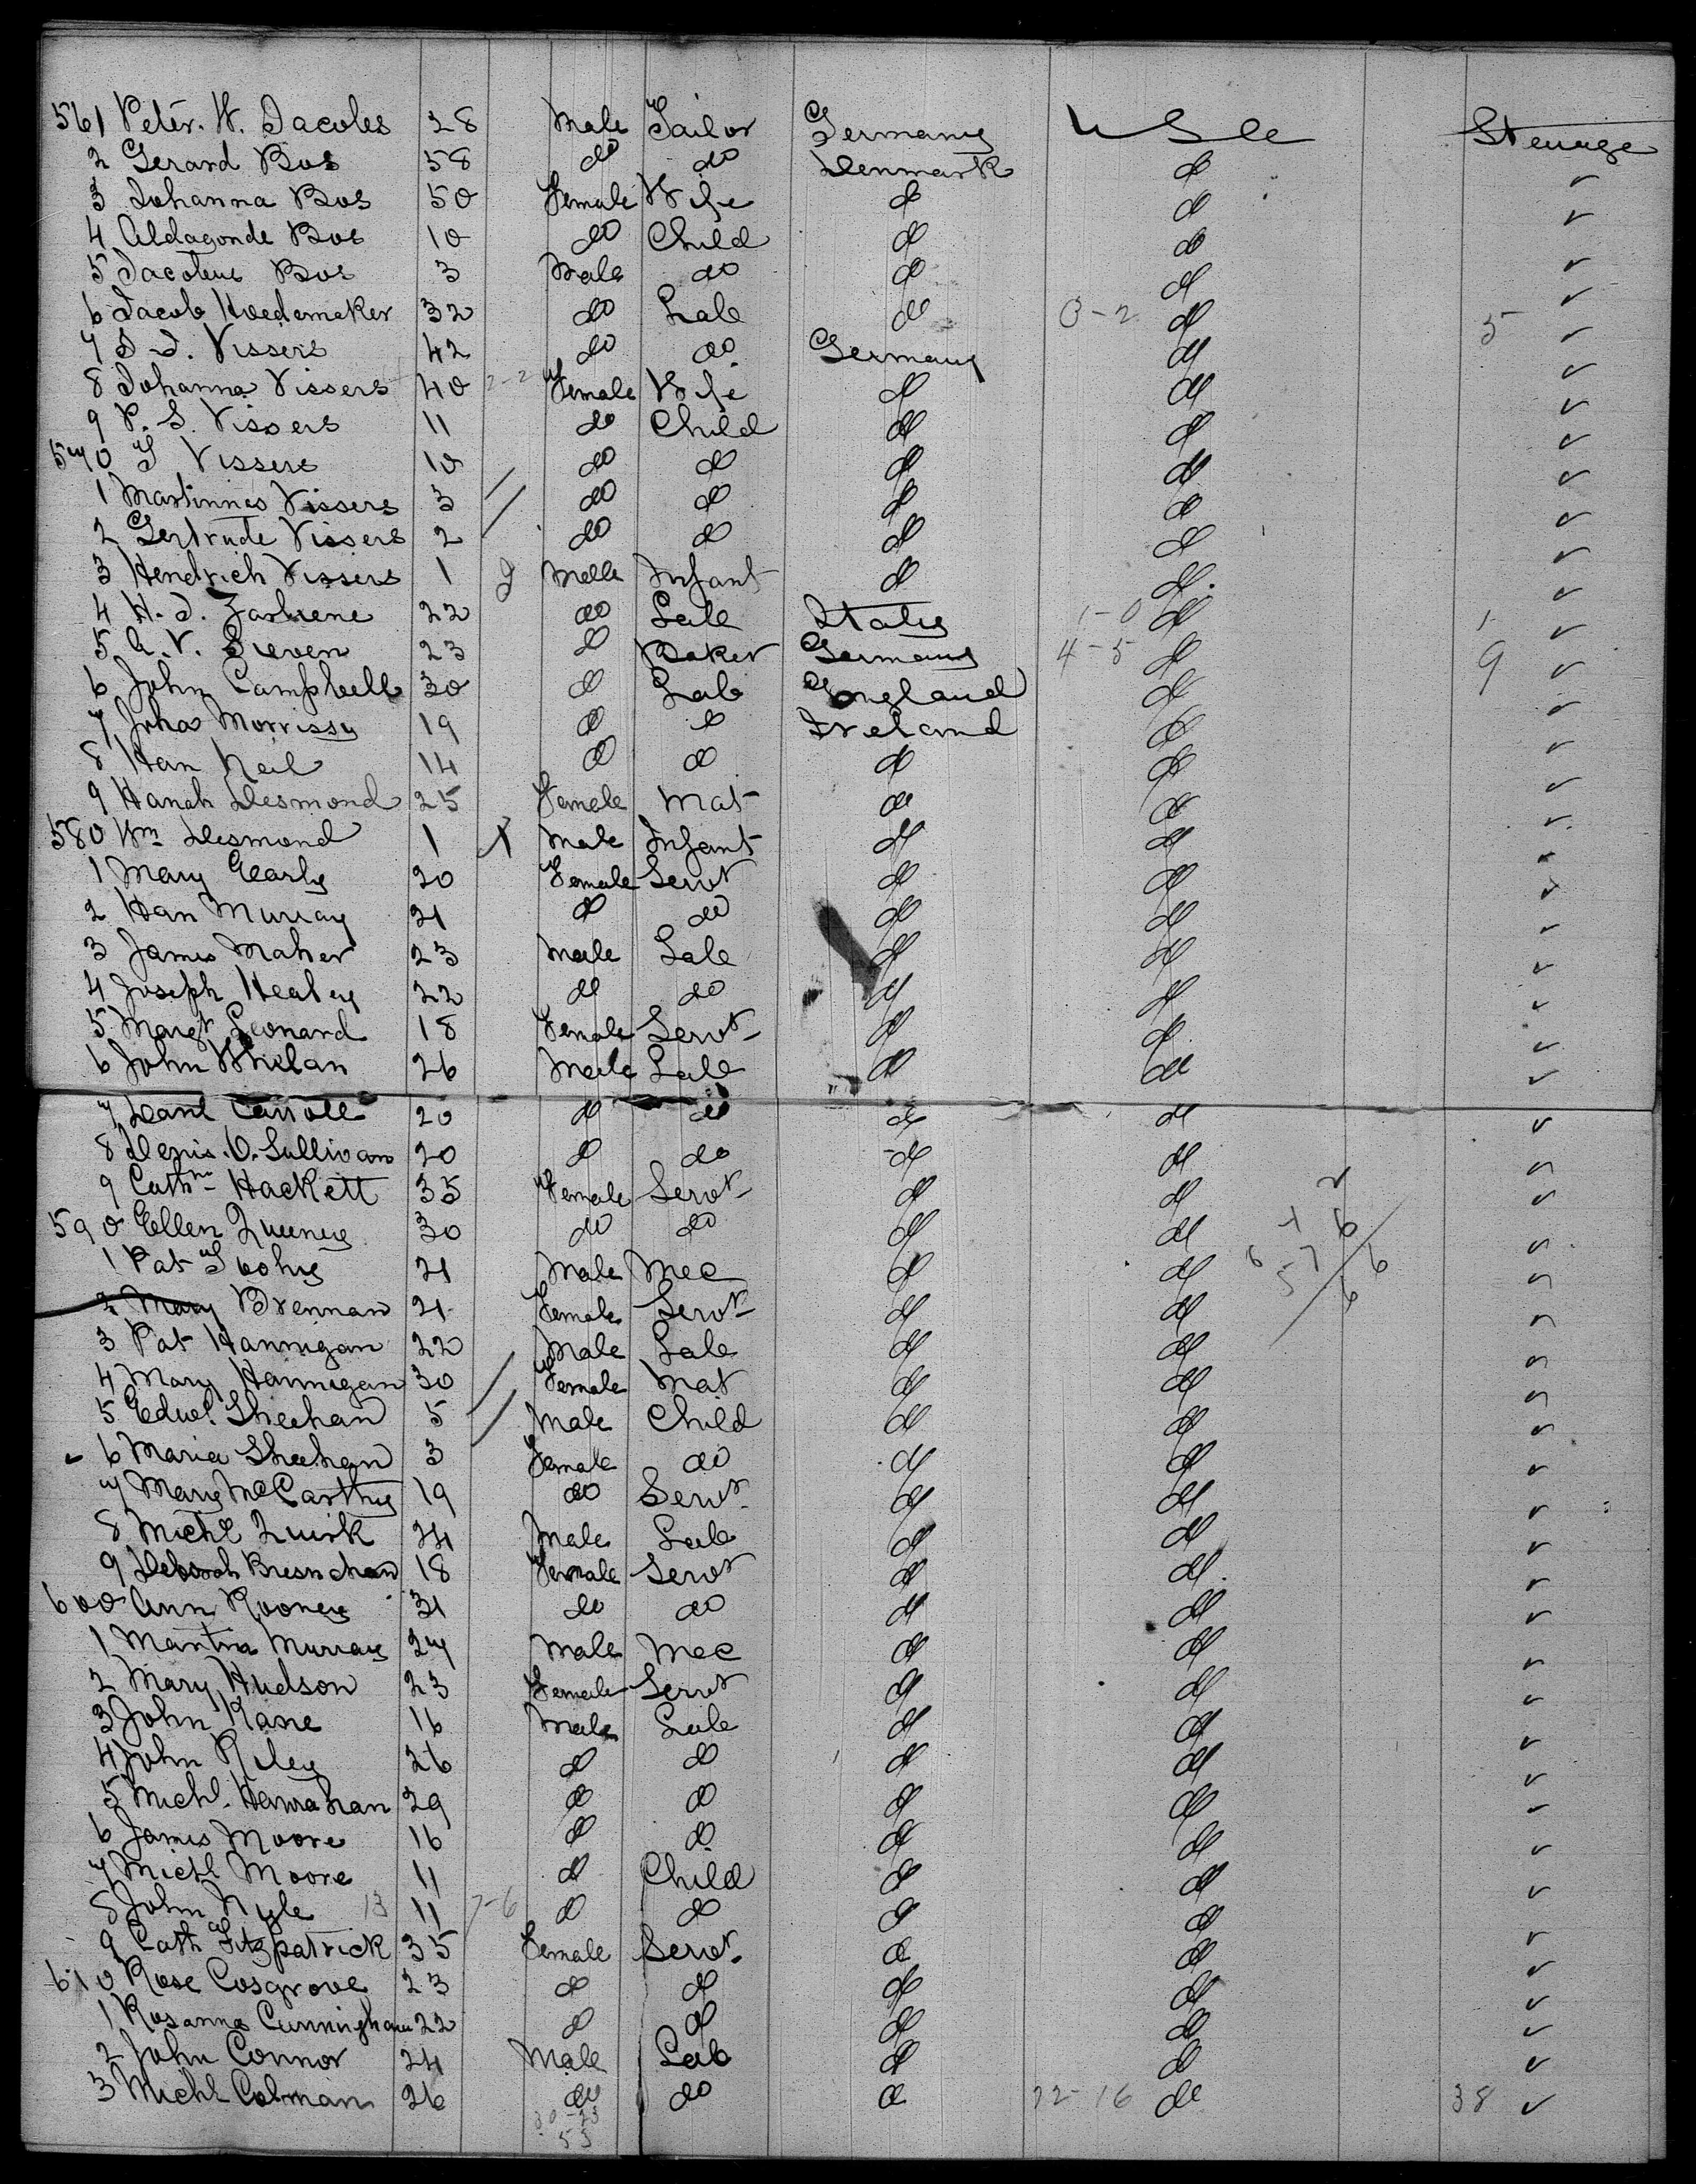 561 Peter. W. Jacobs 28 Male Tailor Germany U S A Steerage
2 Gerard Bos 58 do do Denmark do ✓
3 Johanna Bos 50 Female Wife do do ✓
4 Aldagonde Bos 10 do Child do do ✓
5 Jacobus Bos 3 Male do do do ✓
6 Jacob Hoedemaker 32 do Lab do 3-2 do 5 ✓
7 Vissers 42 do do Germany do ✓
8 Johanna Vissers 40 2-2 Female Wife do do ✓
9 P. S. Vissers 11 do Child do do ✓
570 Vissers 10 do do do do ✓
1 Martinnes Vissers 3 do do do do ✓
2 Gertrude Vissers 2 do do do do ✓
3 Hendrich Vissers 1 Male Infant do do ✓
4 22 do Lab Italy 1-0 do 1 ✓
5 A. V. Sieven 23 do Baker Germany 4-5 do 9 ✓
6 John Campbell 30 do Lab England do ✓
7 John Morrissy 19 do do Ireland do ✓
8 Han Neil 14 do do do do ✓
9 Hanah Desmond 25 Female Mat do do ✓
580 Wm Desmond 1 Male Infant do do ✓
1 Mary Gearly 20 Female Servt do do ✓
2 Han Murray 21 do do do do ✓
3 James Maher 23 Male Lab do do ✓
4 Joseph Healey 22 do do do do ✓
5 Margt Leonard 18 Female Servt do do ✓
6 John Whelan 26 Male Lab do do ✓
7 Danl Carroll 20 do do do do ✓
8 Denis. O. Sullivan 20 do do do do ✓
9 Cathne Hackett 35 Female Servt do do ✓
590 Ellen Queeney 30 do do do do ✓
1 Pat 21 Male Mec do do ✓
2 Mary Brennan 21 Female Servt do do ✓
3 Pat Hannigan 22 Male Lab do do ✓
4 Mary Hannigan 30 Female Mat do do ✓
5 Edwd Sheehan 5 Male Child do do ✓
6 Maria Sheehan 3 Female do do do ✓
7 Mary McCarthy 19 do Servt do do ✓
8 Michl Quirk 24 Male Lab do do ✓
9 Deborah Bresnehan 18 Female Servt do do ✓
600 Ann Rooney 31 do do do do ✓
1 Martin Murray 27 Male Mec do do ✓
2 Mary Hudson 23 Female Servt do do ✓
3 John Kane 16 Male Lab do do ✓
4 John Riley 26 do do do do ✓
5 Michl. Hanrahan 29 do do do do ✓
6 James Moore 16 do do do do ✓
7 Michl Moore 11 do Child do do ✓
8 John Kyle 13 11 7-6 do do do do ✓
9 Cath Fitzpatrick 35 Female Servt. do do ✓
610 Rose Cosgrove 23 do do do do ✓
1 Rosanna Cunningham 22 do do do do ✓
2 John Connor 24 Male Lab do do ✓
3 Michl Colman 26 do do do 22-16 do 38 ✓
30-23
53